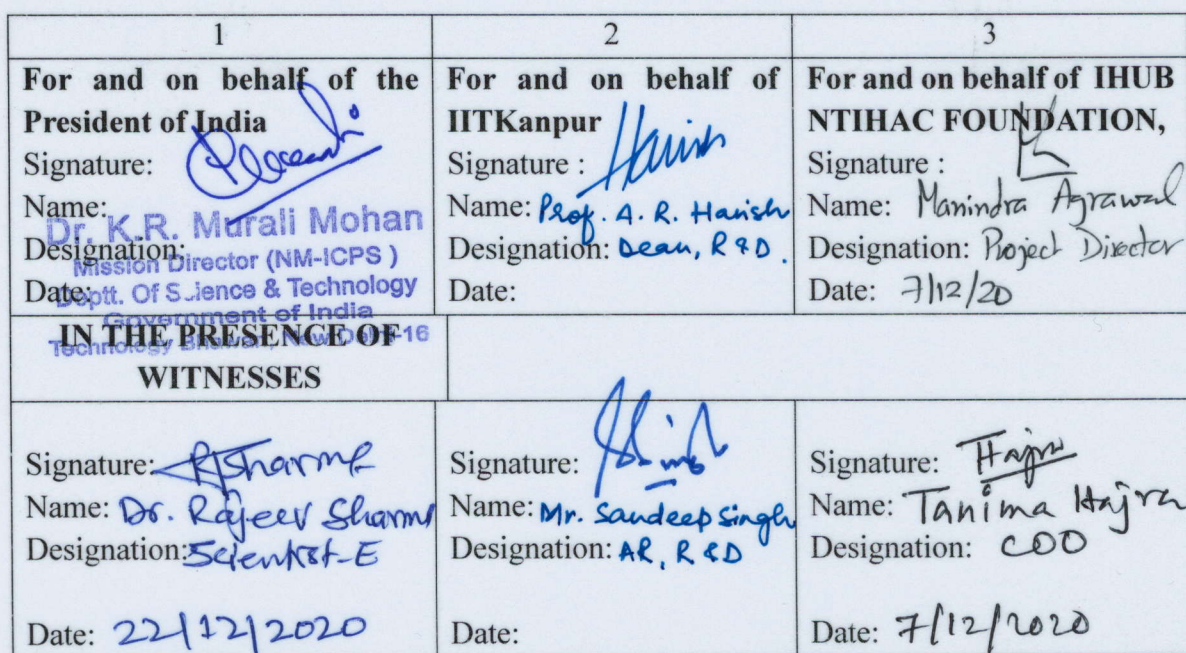 1
2
3
For and on behalf of the
President of India
Signature:
Name:
Dr. K.R. Murali Mohan
Designation:
Mission Director (NM-ICPS )
Date:
Deptt. Of Science & Technology
Government of India
Technology Bhawan, New Delhi-16
For and on behalf of
IITKanpur
Signature : Harish
Name: Prof. A. R. Harish
Designation: Dean, R & D.
Date:
For and on behalf of IHUB
NTIHAC FOUNDATION,
Signature :
Name: Manindra Agrawal
Designation: Project Director
Date: 7/12/20
IN THE PRESENCE OF
WITNESSES
Signature: RSharma
Name: Dr. Rajeev Sharma
Designation: Scientist-E
Date: 22/12/2020
Signature:
Name: Mr. Sandeep Singh
Designation: AR, R & D
Date:
Signature: Hajra
Name: Tanima Hajra
Designation: COO
Date: 7/12/2020